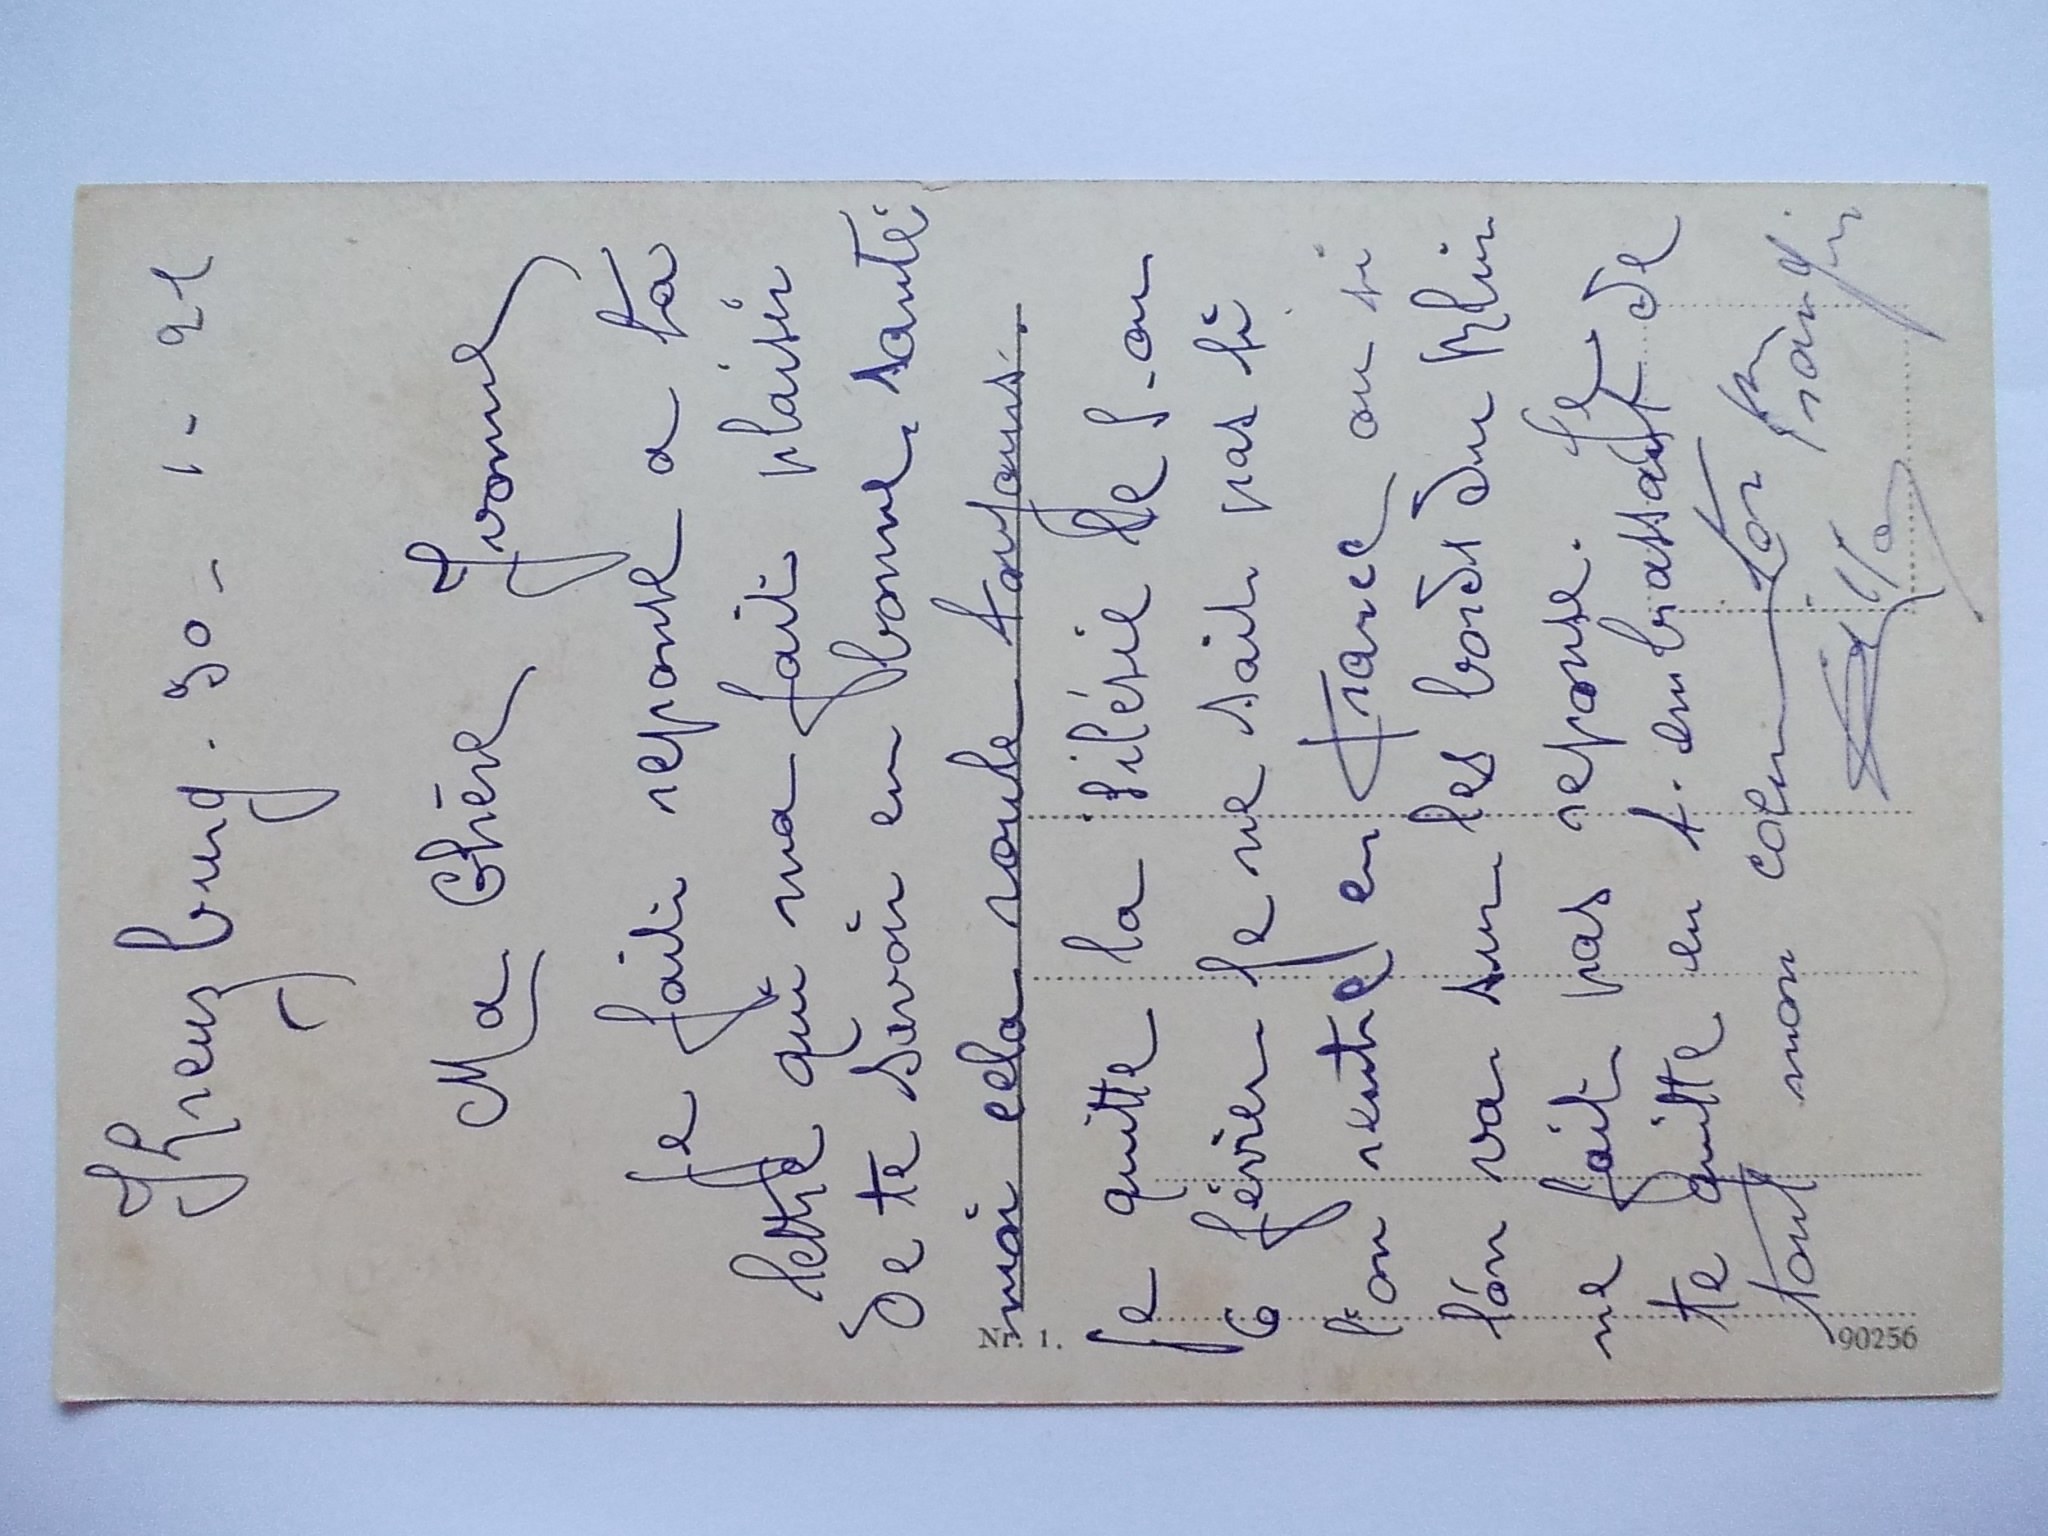 Khreuzburg. 30 - 1 - 21
Ma Chère Yvonne
Je fait reponse a ta
lettre qui ma fait plaisir
De te savoir en bonne santé
moi cela roule toujours.
Je quitte la Silésie le 5 - ou
6 févier Je ne sait pas si
l'on rentre en France ou si
l'on va sur les bords du Rhin
ne fait pas reponse. Je
te quitte en t. embrassant de
tout mon coeur ton
frangin
Nr. 1.
90256